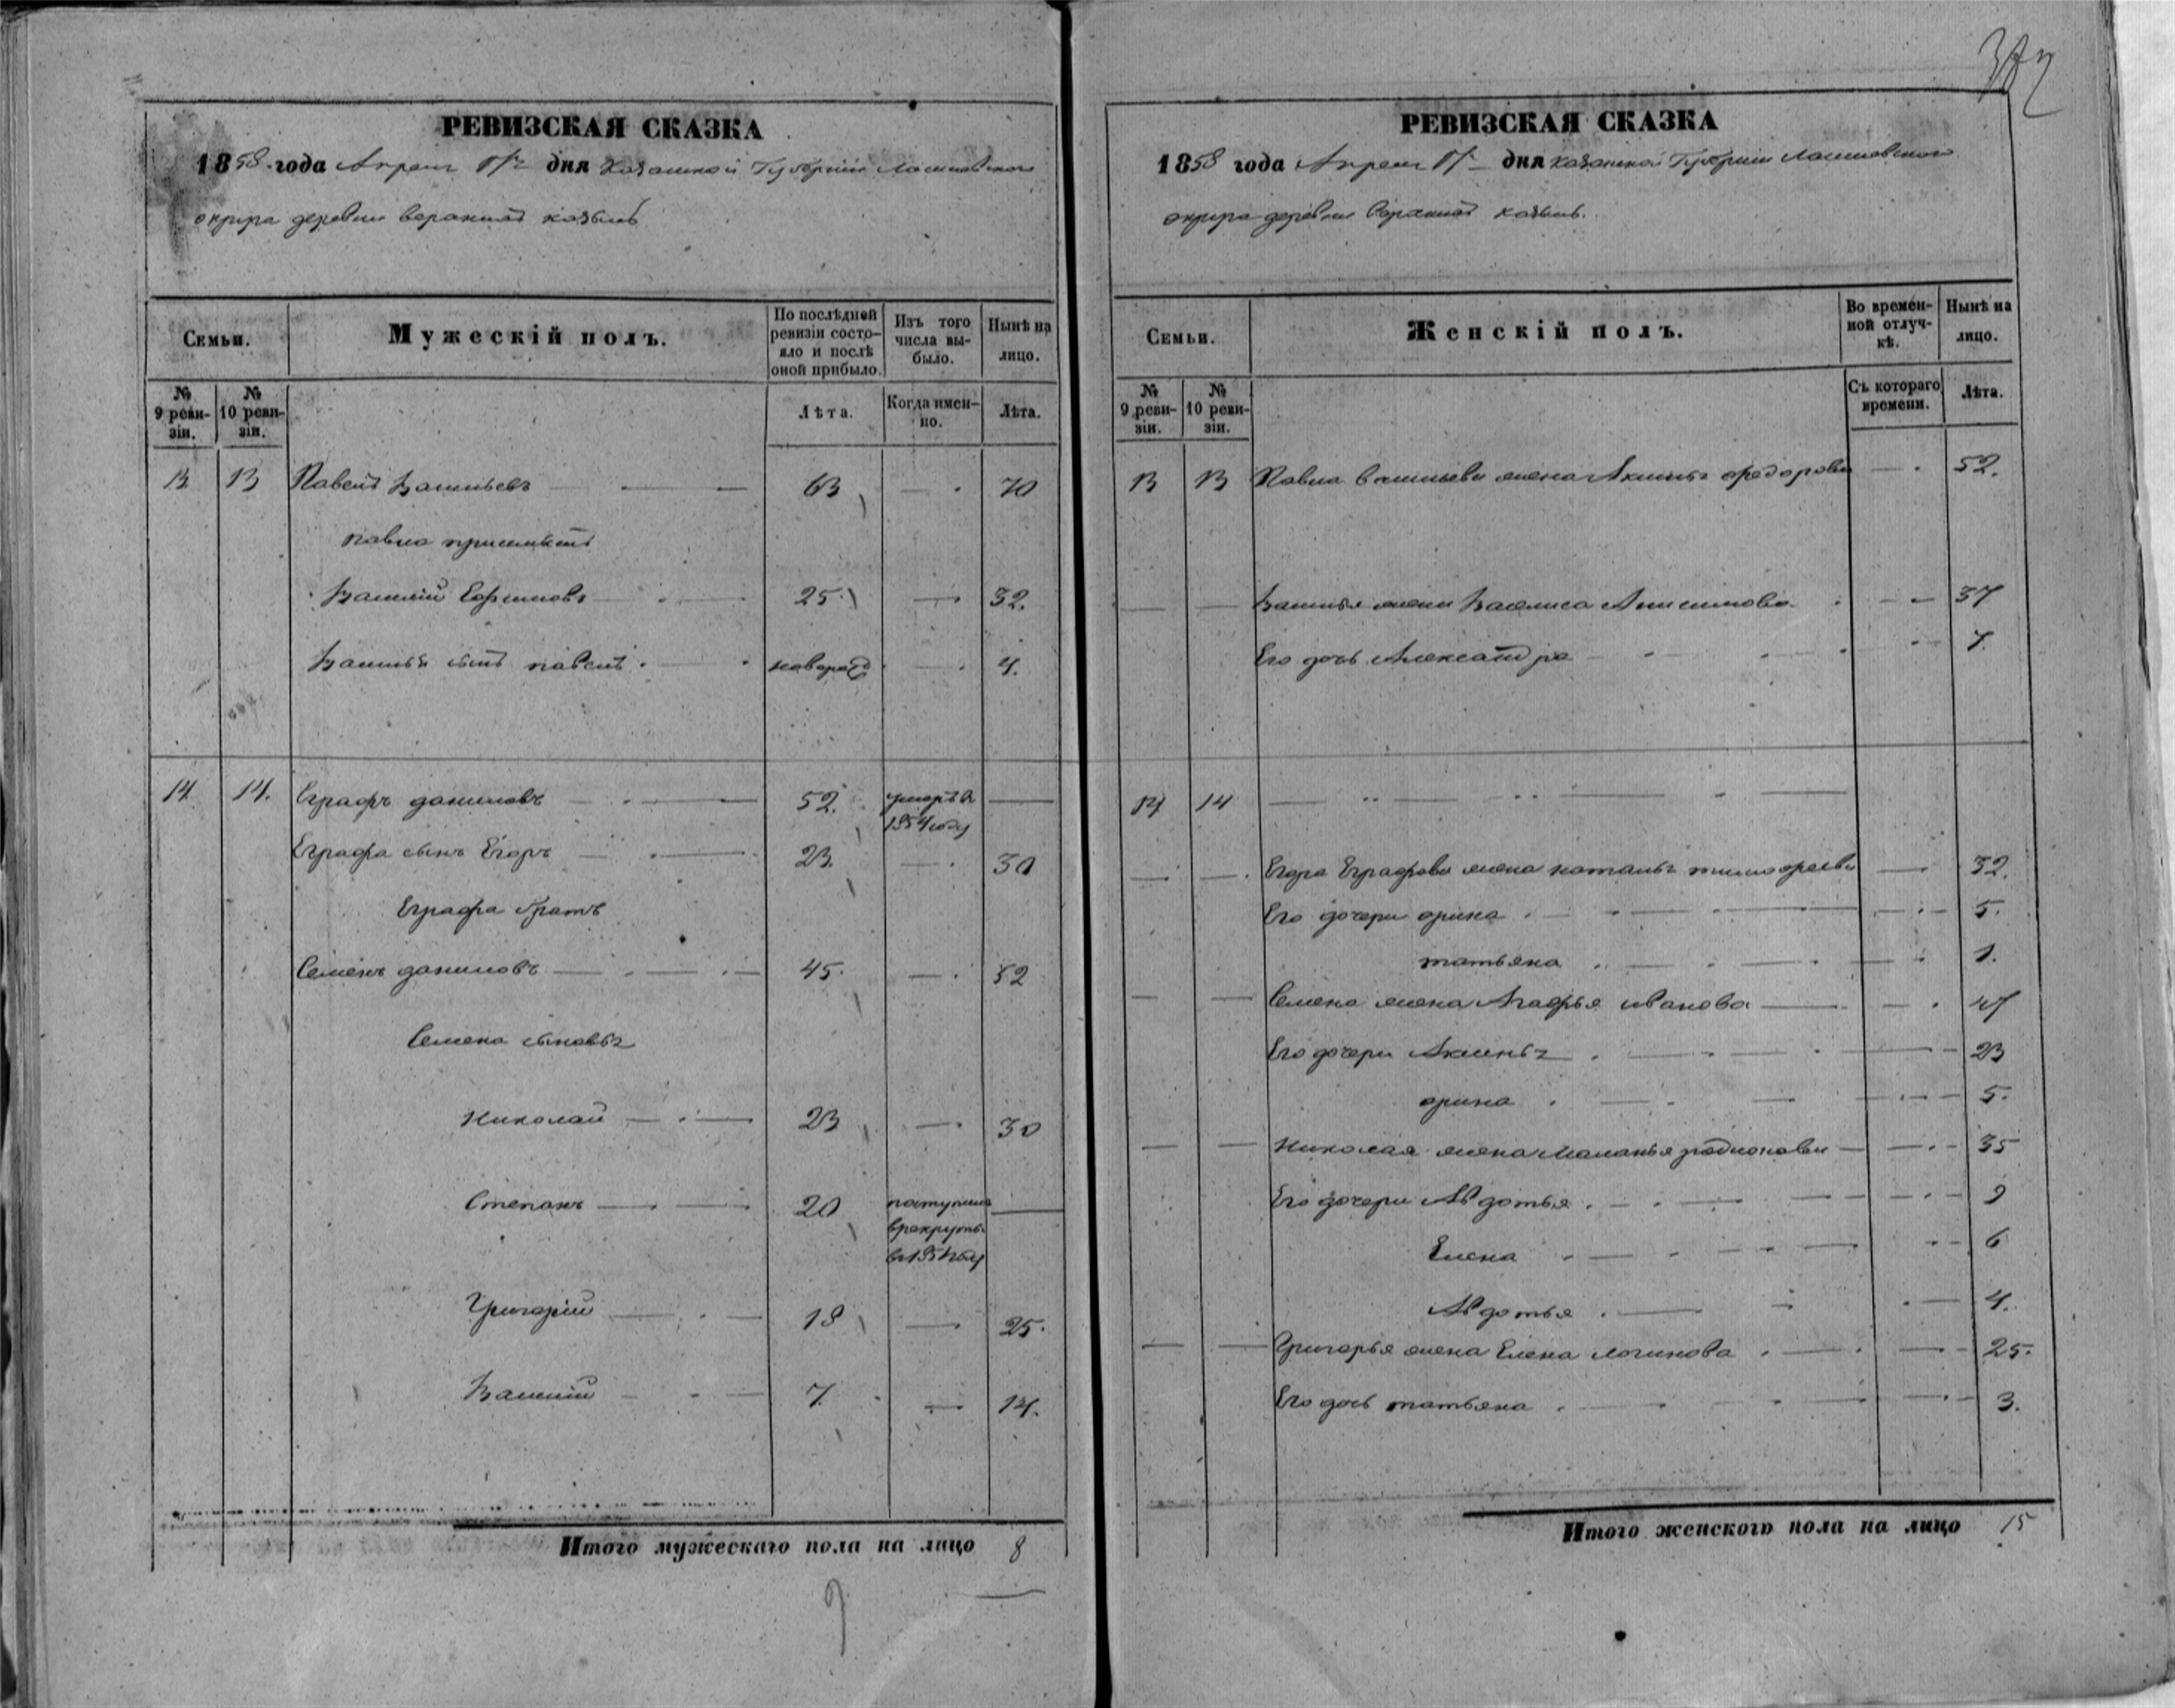 РЕВИЗСКАЯ СКАЗКА
1858 года Апреля дня Казанской Губернии Лаишевского
округа деревни
Семьи.
Мужескій полъ.
По послѣдней ревизіи состо-
яло и послѣ оной прибыло.
Изъ того числа вы-
было.
Нынѣ на лицо.
№ 9 реви-
зіи.
№ 10 реви-
зіи.
Лѣта.
Когда имен-
но.
Лѣта.
13 13 Павелъ Васильевъ 63 70
павла приемышъ
Василий Ефимовъ 25 32.
Василья сынъ павелъ новорожд 4.
14 14. Еграфъ даниловъ 52. умеръ в
1854 году
Еграфа сынъ Егоръ 23. 30
Еграфа братъ
Семенъ даниловъ 45. 52
Семена сыновьz
Николай 23 30
Степанъ 20 поступилъ
врекруты
в 1854 году
Григорій 18 25.
Василій 7. 14.
Итого мужескаго пола на лицо 8
9
РЕВИЗСКАЯ СКАЗКА
1858 года Апреля дня Казанской Губернии Лаишевского
округа деревни
Семьи.
Женскій полъ.
Во времен-
ной отлуч-
кѣ.
Нынѣ на лицо.
№ 9 реви-
зіи.
№ 10 реви-
зіи.
Съ котораго времени.
Лѣта.
13 13 Павла васильева жена Акинья федорова 52.
Василья жена Василиса Анисимова 37
Его дочь Александра 7.
14 14
Егора Еграфова жена наталья тимофеева 32.
Его дочери орина 5.
татьяна 1.
Семена жена Агафья иванова 47
Его дочери Акинья 23
орина 5.
Николая жена Маланья родионова 35
Его дочери Авдотья 9
Елена 6
Авдотья 4.
Григорья жена Елена логинова 25.
Его дочь татьяна 3.
Итого женскаго пола на лицо 15